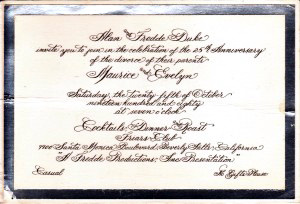 Alan and Freddè Duke
invite you to join in the celebration of the 25th Anniversary
of the divorce of their parents
Maurice and Evelyn
Saturday, the twenty-fifth of October
nineteen hundred and eighty
at seven o'clock
Cocktails Dinner and Roast
Friars Club
9900 Santa Monica Boulevard, Beverly Hills, California
"A Freddè Productions, Inc. Presentation"
Casual
No Gifts Please